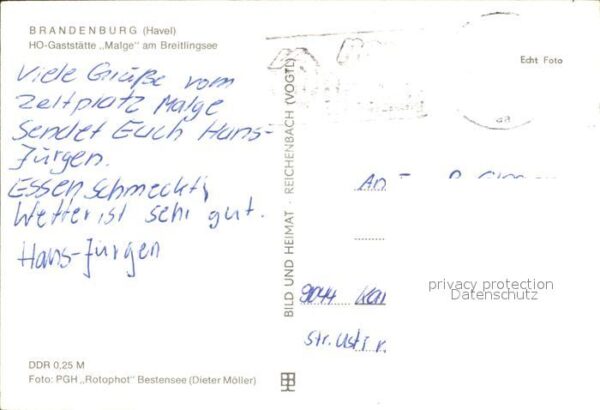 BRANDENBURG (Havel)
HO-Gaststätte „Malge" am Breitlingsee
Viele Grüße vom
Zeltplatz Malge
Sendet Euch Hans-
Jürgen.
Essen schmeckt,
Wetter ist sehr gut.
Hans-Jürgen
DDR 0,25 M
Foto: PGH „Rotophot" Bestensee (Dieter Möller)
BILD UND HEIMAT · REICHENBACH (VOGTL)
Echt Foto
An
9044
privacy protection
Datenschutz